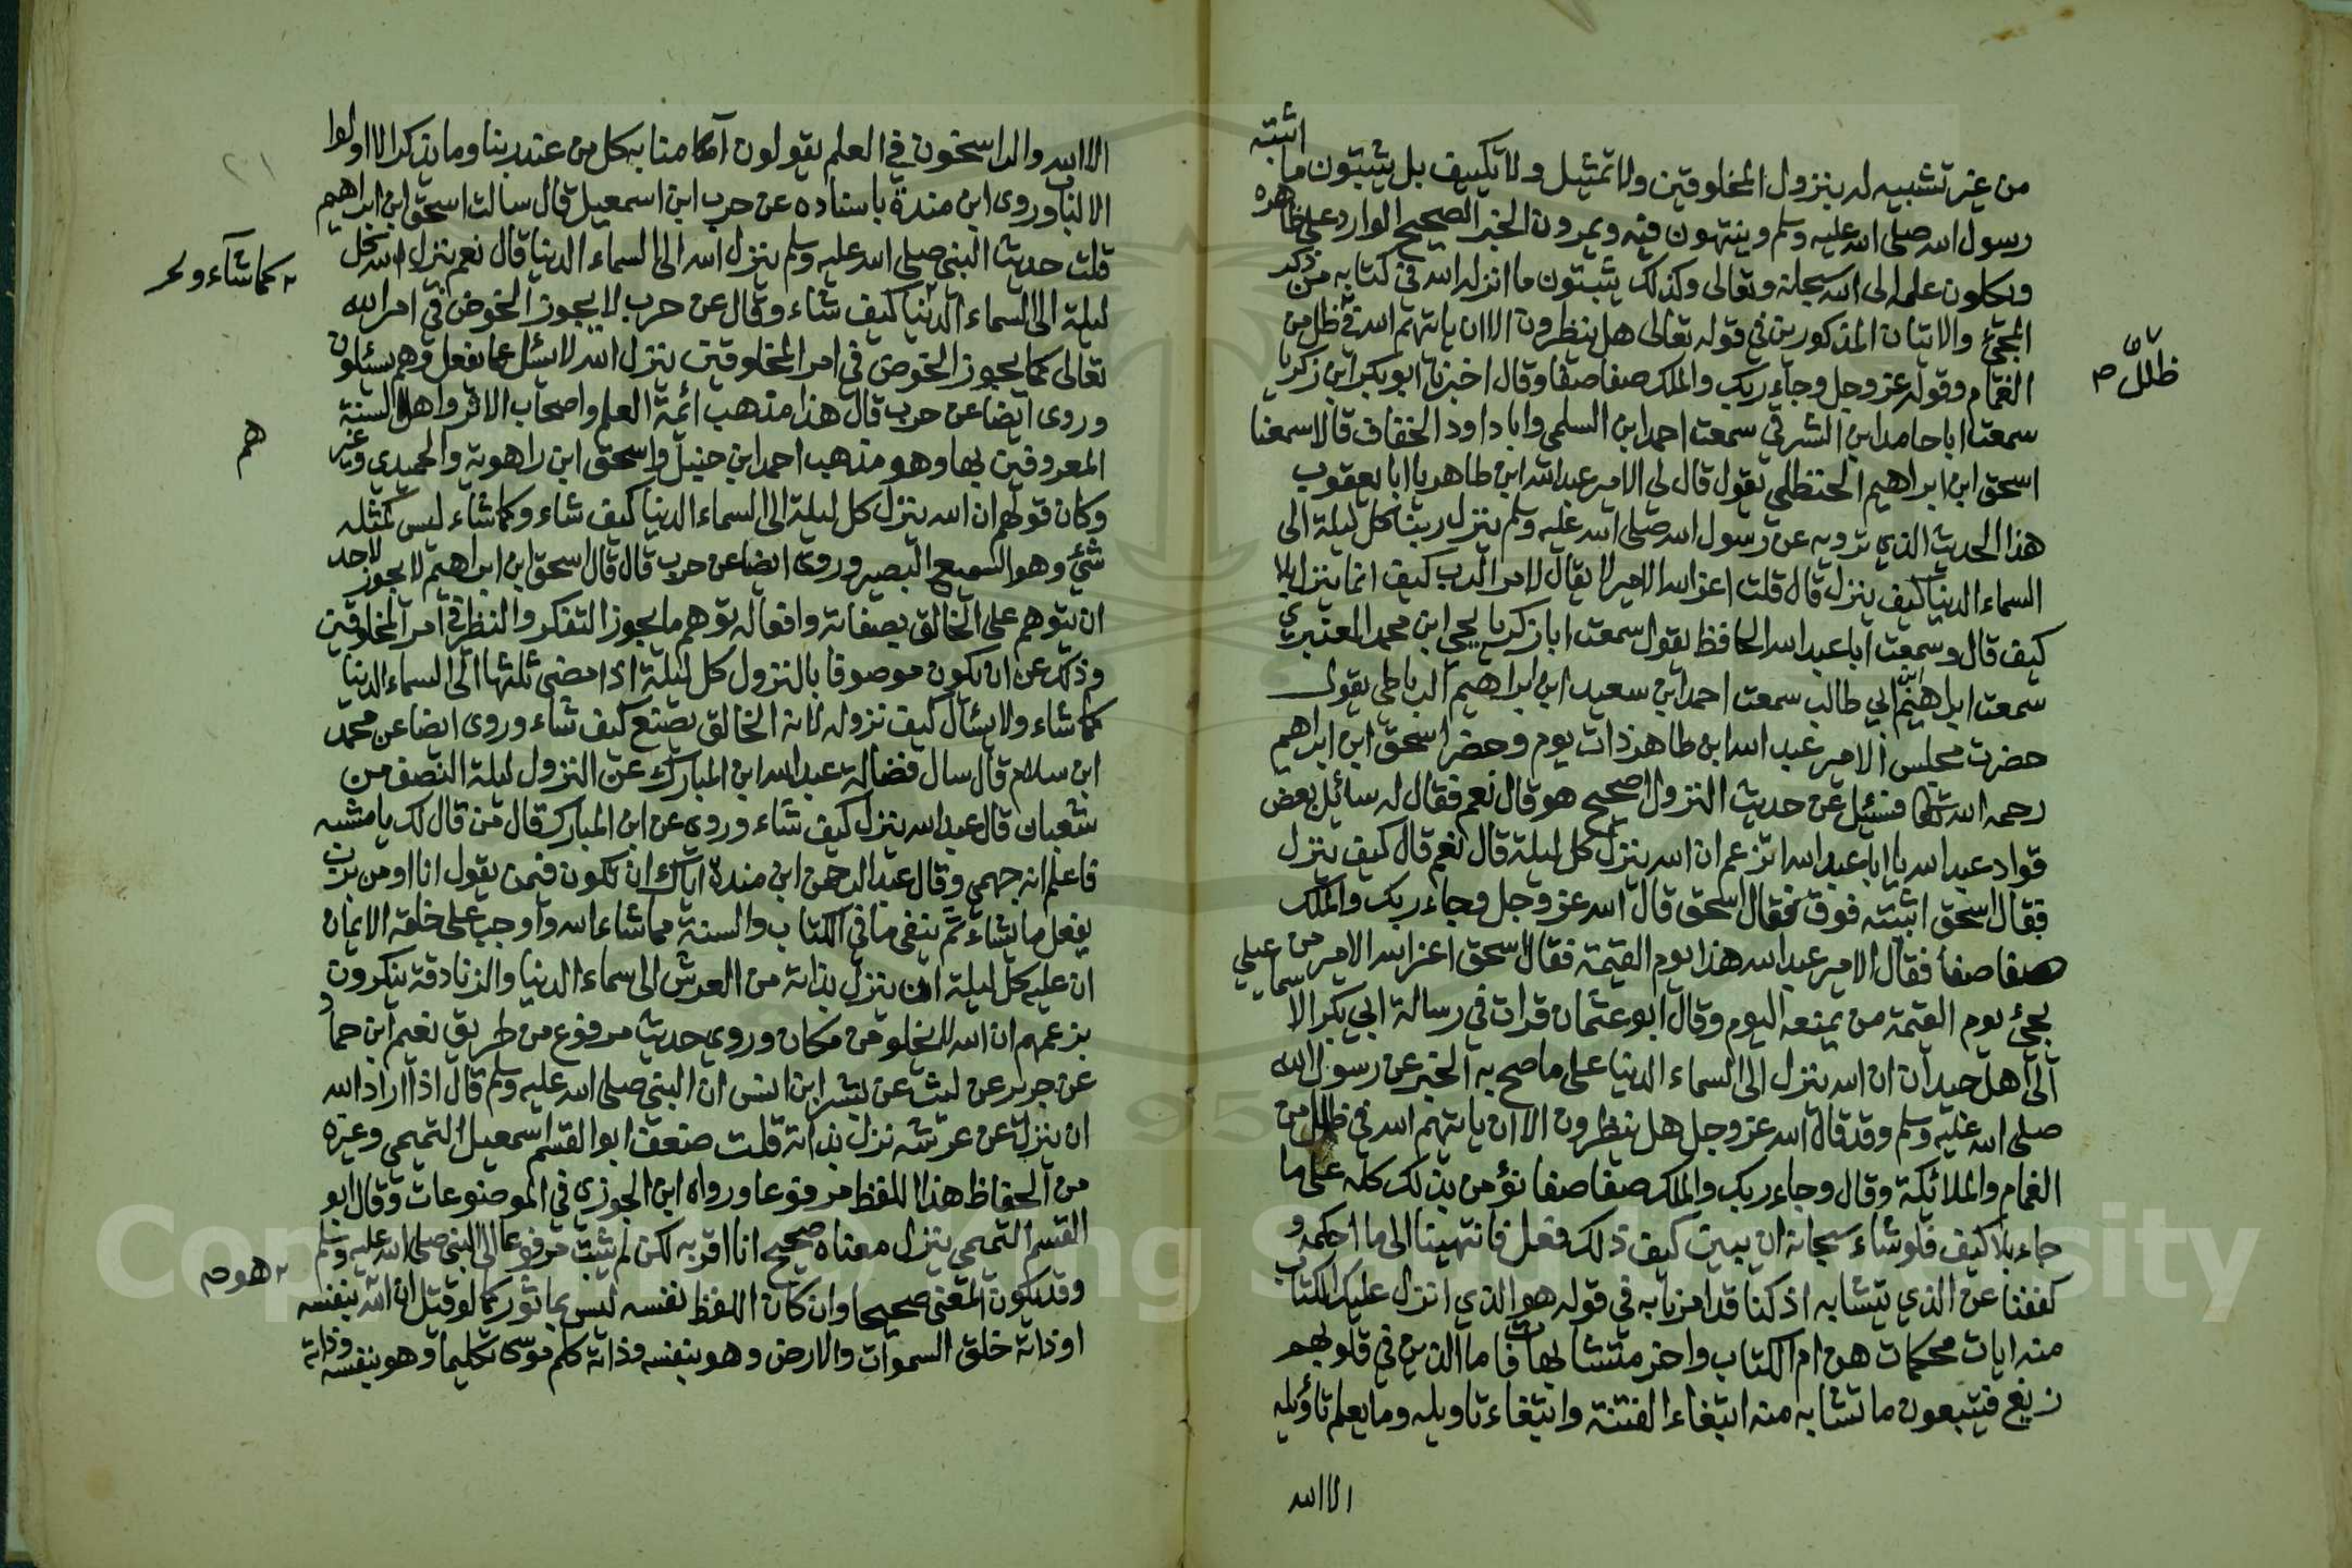 اثبته
من غير تشبيه له بنزول المخلوقين ولا تمثيل ولا تكييف بل يثبتون ما
رسول الله صلى الله عليه وسلم وينتهون فيه ويمرون الخبر الصحيح الوارد على ظاهره
ويكلون علمه الى الله سبحانه وتعالى وكذلك يثبتون ما انزله الله في كتابه من ذكر
المجئ والاتيان المذكورين في قوله تعالى هل ينظرون الا ان ياتيهم الله في ظلل من
ظلل م
الغمام وقوله عز وجل وجاء ربك والملك صفا صفا وقال اخبرنا ابو بكر ابن زكريا
سمعت ابا حامد ابن الشرقي سمعت احمد ابن السلمي وابا داود الخفاف قالا سمعنا
اسحق ابن ابراهيم الحنظلي يقول قال لي الامير عبد الله ابن طاهر يا ابا يعقوب
هذا الحديث الذي ترويه عن رسول الله صلى الله عليه وسلم ينزل ربنا كل ليلة الى
السماء الدنيا كيف ينزل قال قلت اعز الله الامير لا يقال لامر الرب كيف انما ينزل بلا
كيف قال وسمعت ابا عبد الله الحافظ يقول سمعت ابا زكريا يحيى ابن محمد العنبري
سمعت ابراهيم ابن ابي طالب سمعت احمد ابن سعيد ابن ابراهيم الرباطي يقول
حضرت مجلس الامير عبد الله ابن طاهر ذات يوم وحضر اسحق ابن ابراهيم
رحمه الله فسئيل عن حديث النزول اصحيح هو قال نعم فقال له سائيل بعض
قواد عبد الله يا ابا عبد الله اتزعم ان الله ينزل كل ليلة قال نعم قال كيف ينزل
فقال اسحق اثبته فوق فقال اسحق قال الله عز وجل وجاء ربك والملك
صفا صفا فقال الامير عبد الله هذا يوم القيمة فقال اسحق اعز الله الامير من
يجئ يوم القيمة من يمنعه اليوم وقال ابو عثمان قرات في رسالة ابي بكر الا
سماعيلي
الى اهل جيدان ان الله ينزل الى السماء الدنيا على ما صح به الخبر عن رسول الله
صلى الله عليه وسلم وقد قال الله عز وجل هل ينظرون الا ان ياتيهم الله في ظلل من
الغمام والملائكة وقال وجاء ربك والملك صفا صفا نؤمن بذلك كله على ما
جاء بلا كيف فلو شاء سبحانه ان يبين كيف ذلك فعل فانتهينا الى ما احكمه و
كففنا عن الذي يتشابه اذ كنا قد امرنا به في قوله هو الذي انزل عليك الكتاب
منه ايات محكمات هن ام الكتاب واخر متشابهات فاما الذين في قلوبهم
زيغ فيتبعون ما تشابه منه ابتغاء الفتنة وابتغاء تاويله وما يعلم تأويله
الا الله
الا الله والراسخون في العلم يقولون آمنا به كل من عند ربنا وما يذكر الا اولوا
الالباب وروى ابن مندة باسناده عن حرب ابن اسمعيل قال سالت اسحق ابن ابراهيم
قلت حديث النبي صلى الله عليه وسلم ينزل الله الى السماء الدنيا قال نعم ينزل الله كل
ليلة الى السماء الدنيا كيف شاء وقال عن حرب لا يجوز الخوض في امر الله
كما شاء و
تعالى كما يجوز الخوض في امر المخلوقين ينزل الله لا يسئل عما يفعل وهم يسئلون
وروى ايضا عن حرب قال هذا مذهب ائمة العلم واصحاب الاثر واهل السنة
المعروفين بها وهو مذهب احمد ابن حنبل واسحق ابن راهوية والحميدي وغير
هم
وكان قولهم ان الله ينزل كل ليلة الى السماء الدنيا كيف شاء وكما شاء ليس كمثله
شئ وهو السميع البصير وروى ايضا عن حرب قال قال اسحق ابن ابراهيم لا يجوز لاحد
ان يتوهم على الخالق بصفاته وافعاله توهم ما يجوز التفكر والنظر في امر المخلوقين
وذلك عن ان يكون موصوفا بالنزول كل ليلة اذا مضى ثلثها الى السماء الدنيا
كما شاء ولا يسئال كيف نزوله لانه الخالق يصنع كيف شاء وروى ايضا عن محمد
ابن سلام قال سال فضالة عبد الله ابن المبارك عن النزول ليلة النصف من
شعبان قال عبد الله ينزل كيف شاء وروى عن ابن المبارك قال من قال لك يا مشبه
فاعلم انه جهمي وقال عبد الرحمن ابن مندة اياك ان تكون فيمن يقول انا اومن برب
يفعل ما يشاء ثم ينفي ما في الكتاب والسنة مما شاء الله واوجب على خلقه الايمان
ان عليه كل ليلة ان ينزل بذاته من العرش الى سماء الدنيا والزنادقة ينكرون
بزعمهم ان الله لا يخلو من مكان وروى حديث مرفوع من طريق نعيم ابن حماد
عن جرير عن ليث عن بشر ابن انس ان النبي صلى الله عليه وسلم قال اذا اراد الله
ان ينزل عن عرشه نزل بذاته قلت ضعف ابو القسم اسمعيل التميمي وغيره
من الحفاظ هذا اللفظ مرفوعا ورواه ابن الجوزي في الموضوعات وقال ابو
القسم التميمي ينزل معناه صحيح انا اقر به لكن لم يثبت مرفوعا الى النبي صلى الله عليه وسلم
هو م
وقد يكون المعنى صحيحا وان كان اللفظ نفسه ليس بماثور كما لو قيل ان الله بنفسه
او ذاته خلق السموات والارض وهو بنفسه وذاته كلم موسى تكليما وهو بنفسه وذاته
Copyright © King Saud University